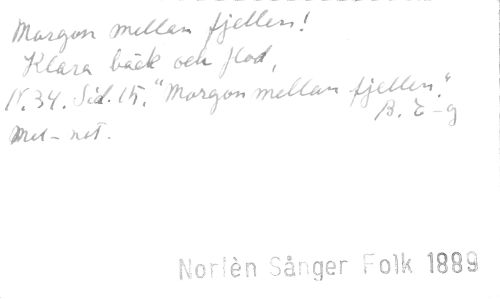 Morgon mellan fjellen!
Klara bäck och flod,
N. 34. Sid. 15. "Morgon mellan fjellen."
B. E-g
Mel-not.
Norlèn Sånger Folk 1889